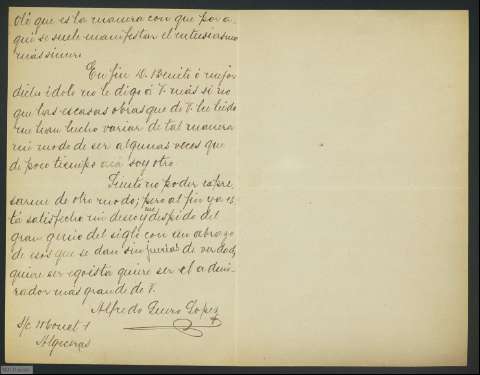 olé que es la manera con que por a-
quí se suele manifestar el entusiasmo
más sincero.
En fin D. Benito ó mejor
dicho ídolo no le digo á V. más si no
que las escasas obras que de V. he leido
me han hecho variar de tal manera
mi modo de ser algunas veces que
de poco tiempo acá soy otro
Siento no poder expre
sarme de otro modo; pero al fin ya es
tá satisfecho mi deseo y me despido del
gran genio del siglo con un abrazo
de esos que se dan sin de verdad,
quiere ser egoista quiere ser el admi-
rador más grande de V.
Alfredo Lopez
S/c 1
Algeciras